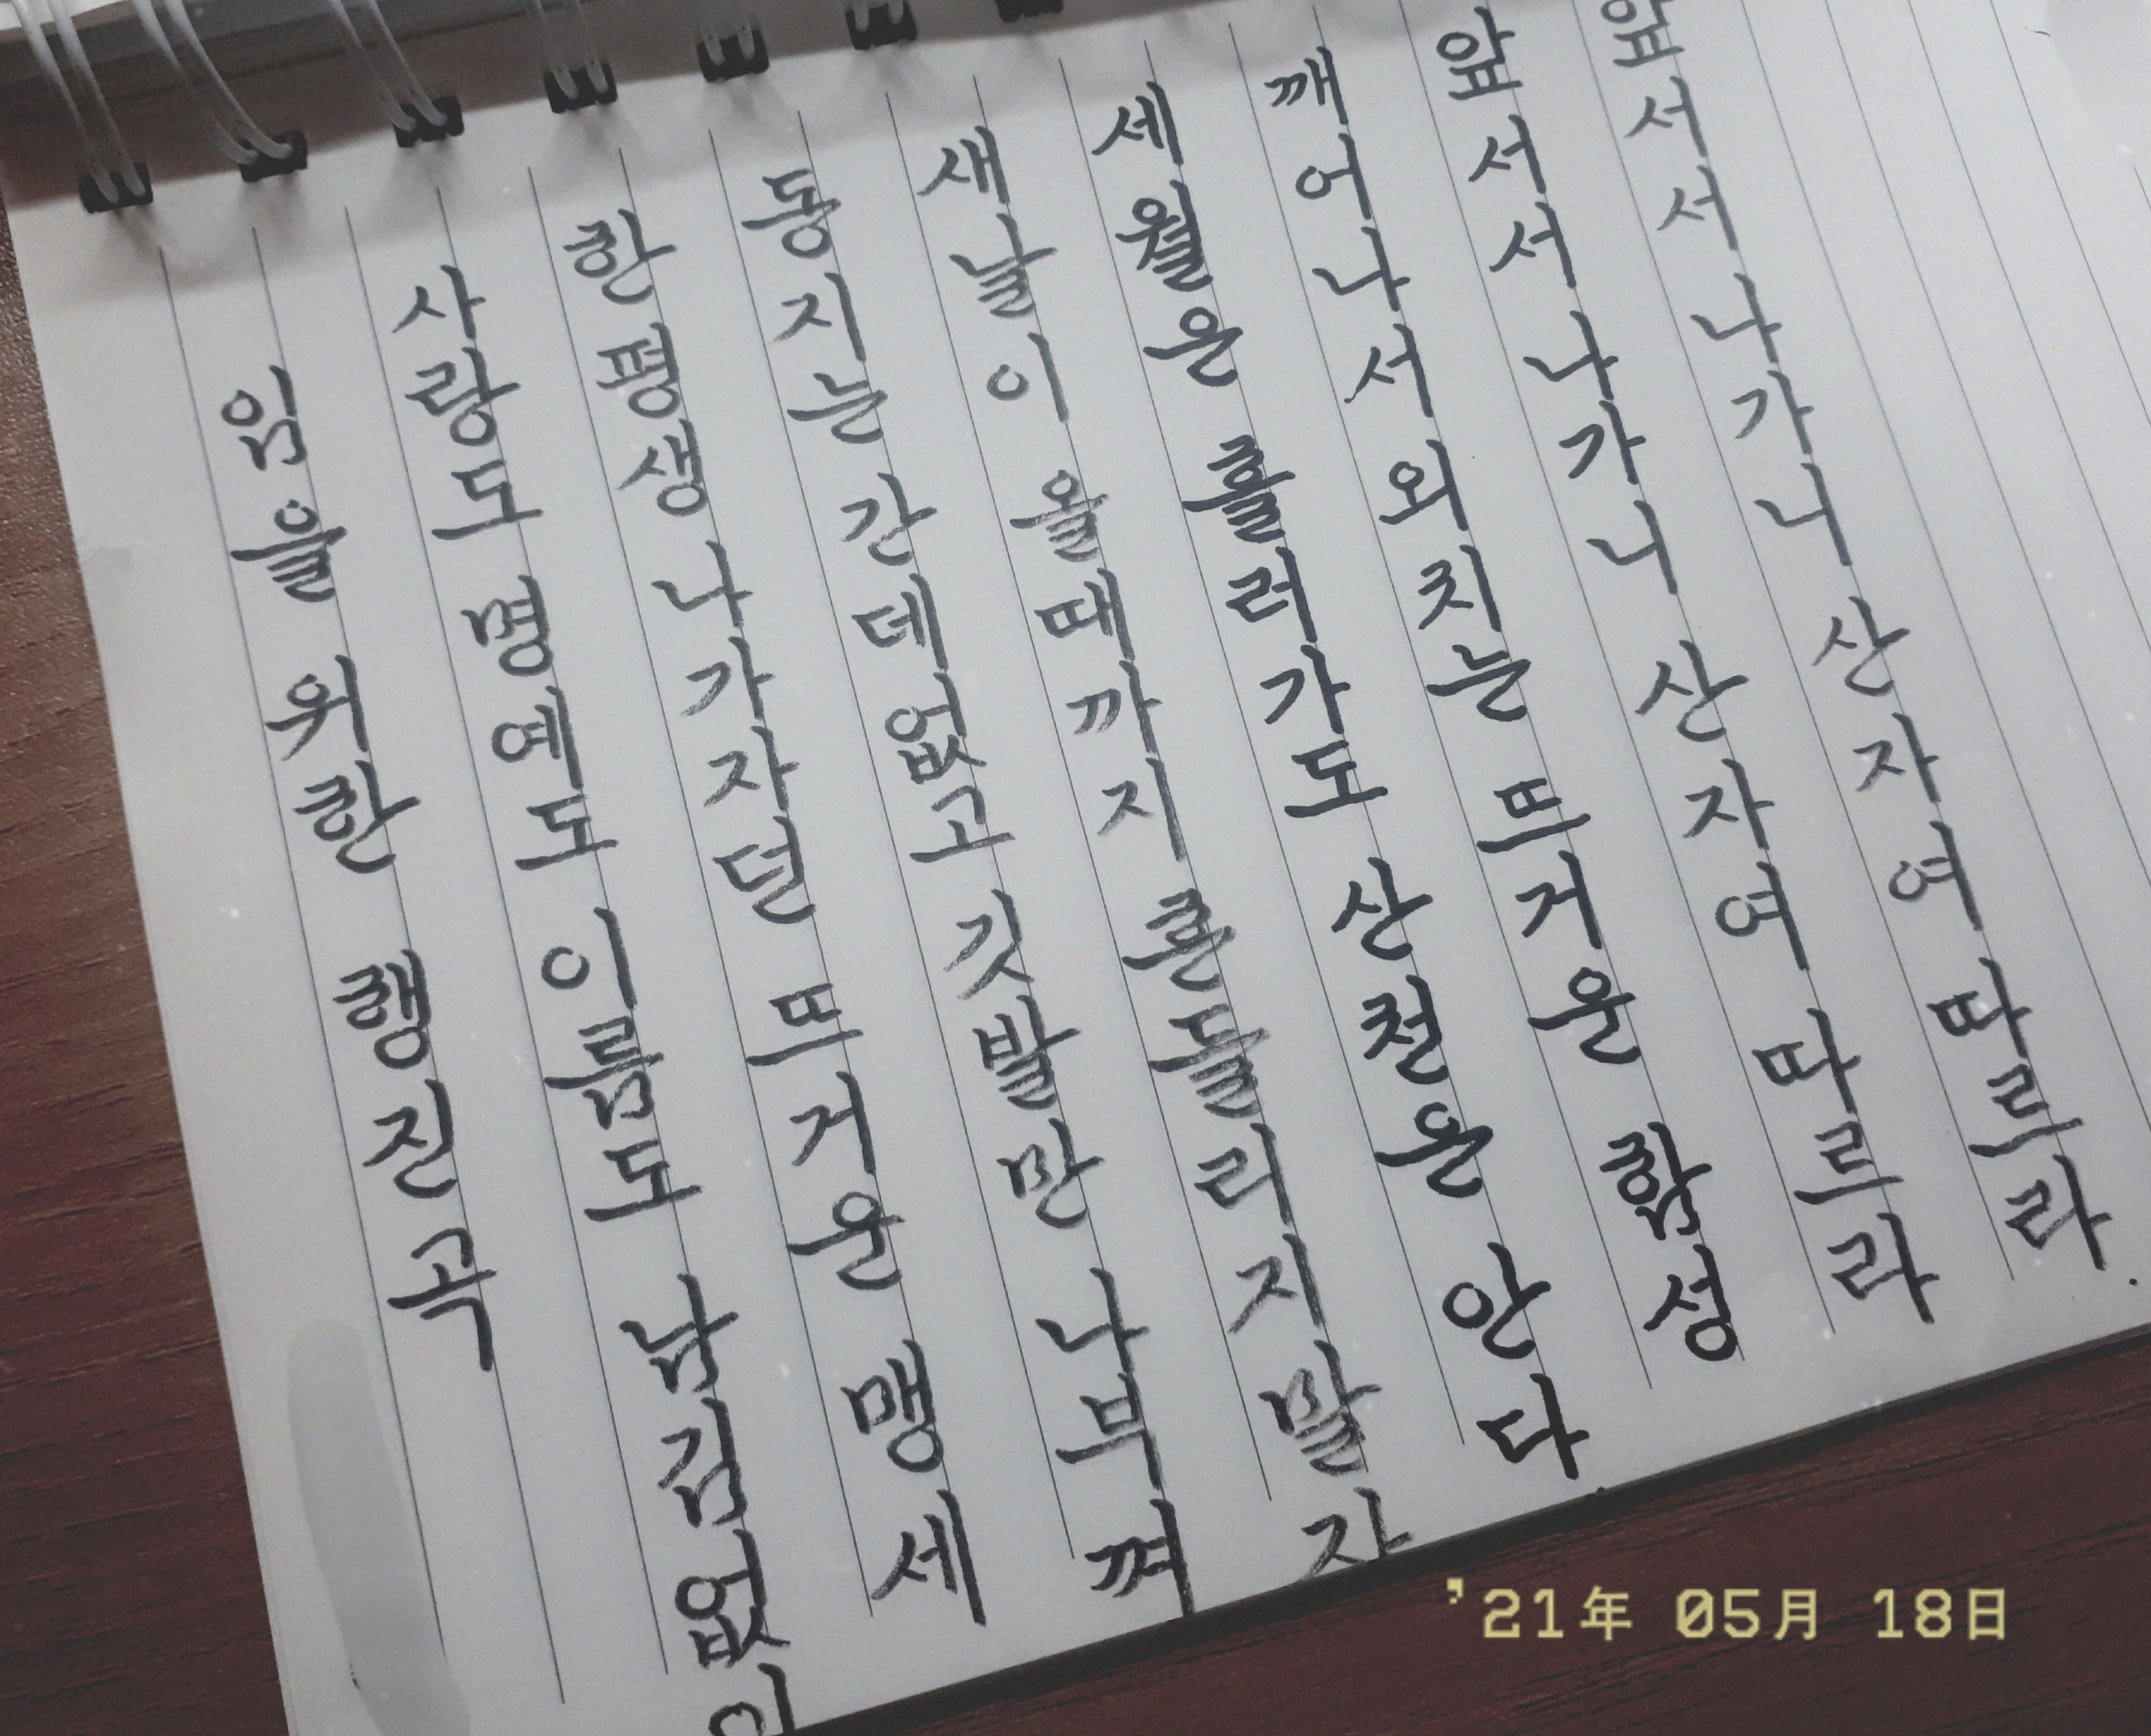 임을 위한 행진곡
사랑도 명예도 이름도 남김없이
한평생 나가자던 뜨거운 맹세
동지는 간데없고 깃발만 나부껴
새날이 올때까지 흔들리지말자
세월은 흘러가도 산천은 안다
깨어나서 외치는 뜨거운 함성
앞서서 나가니 산자여 따르라
앞서서 나가니 산자여 따르라.
'21年 05月 18日